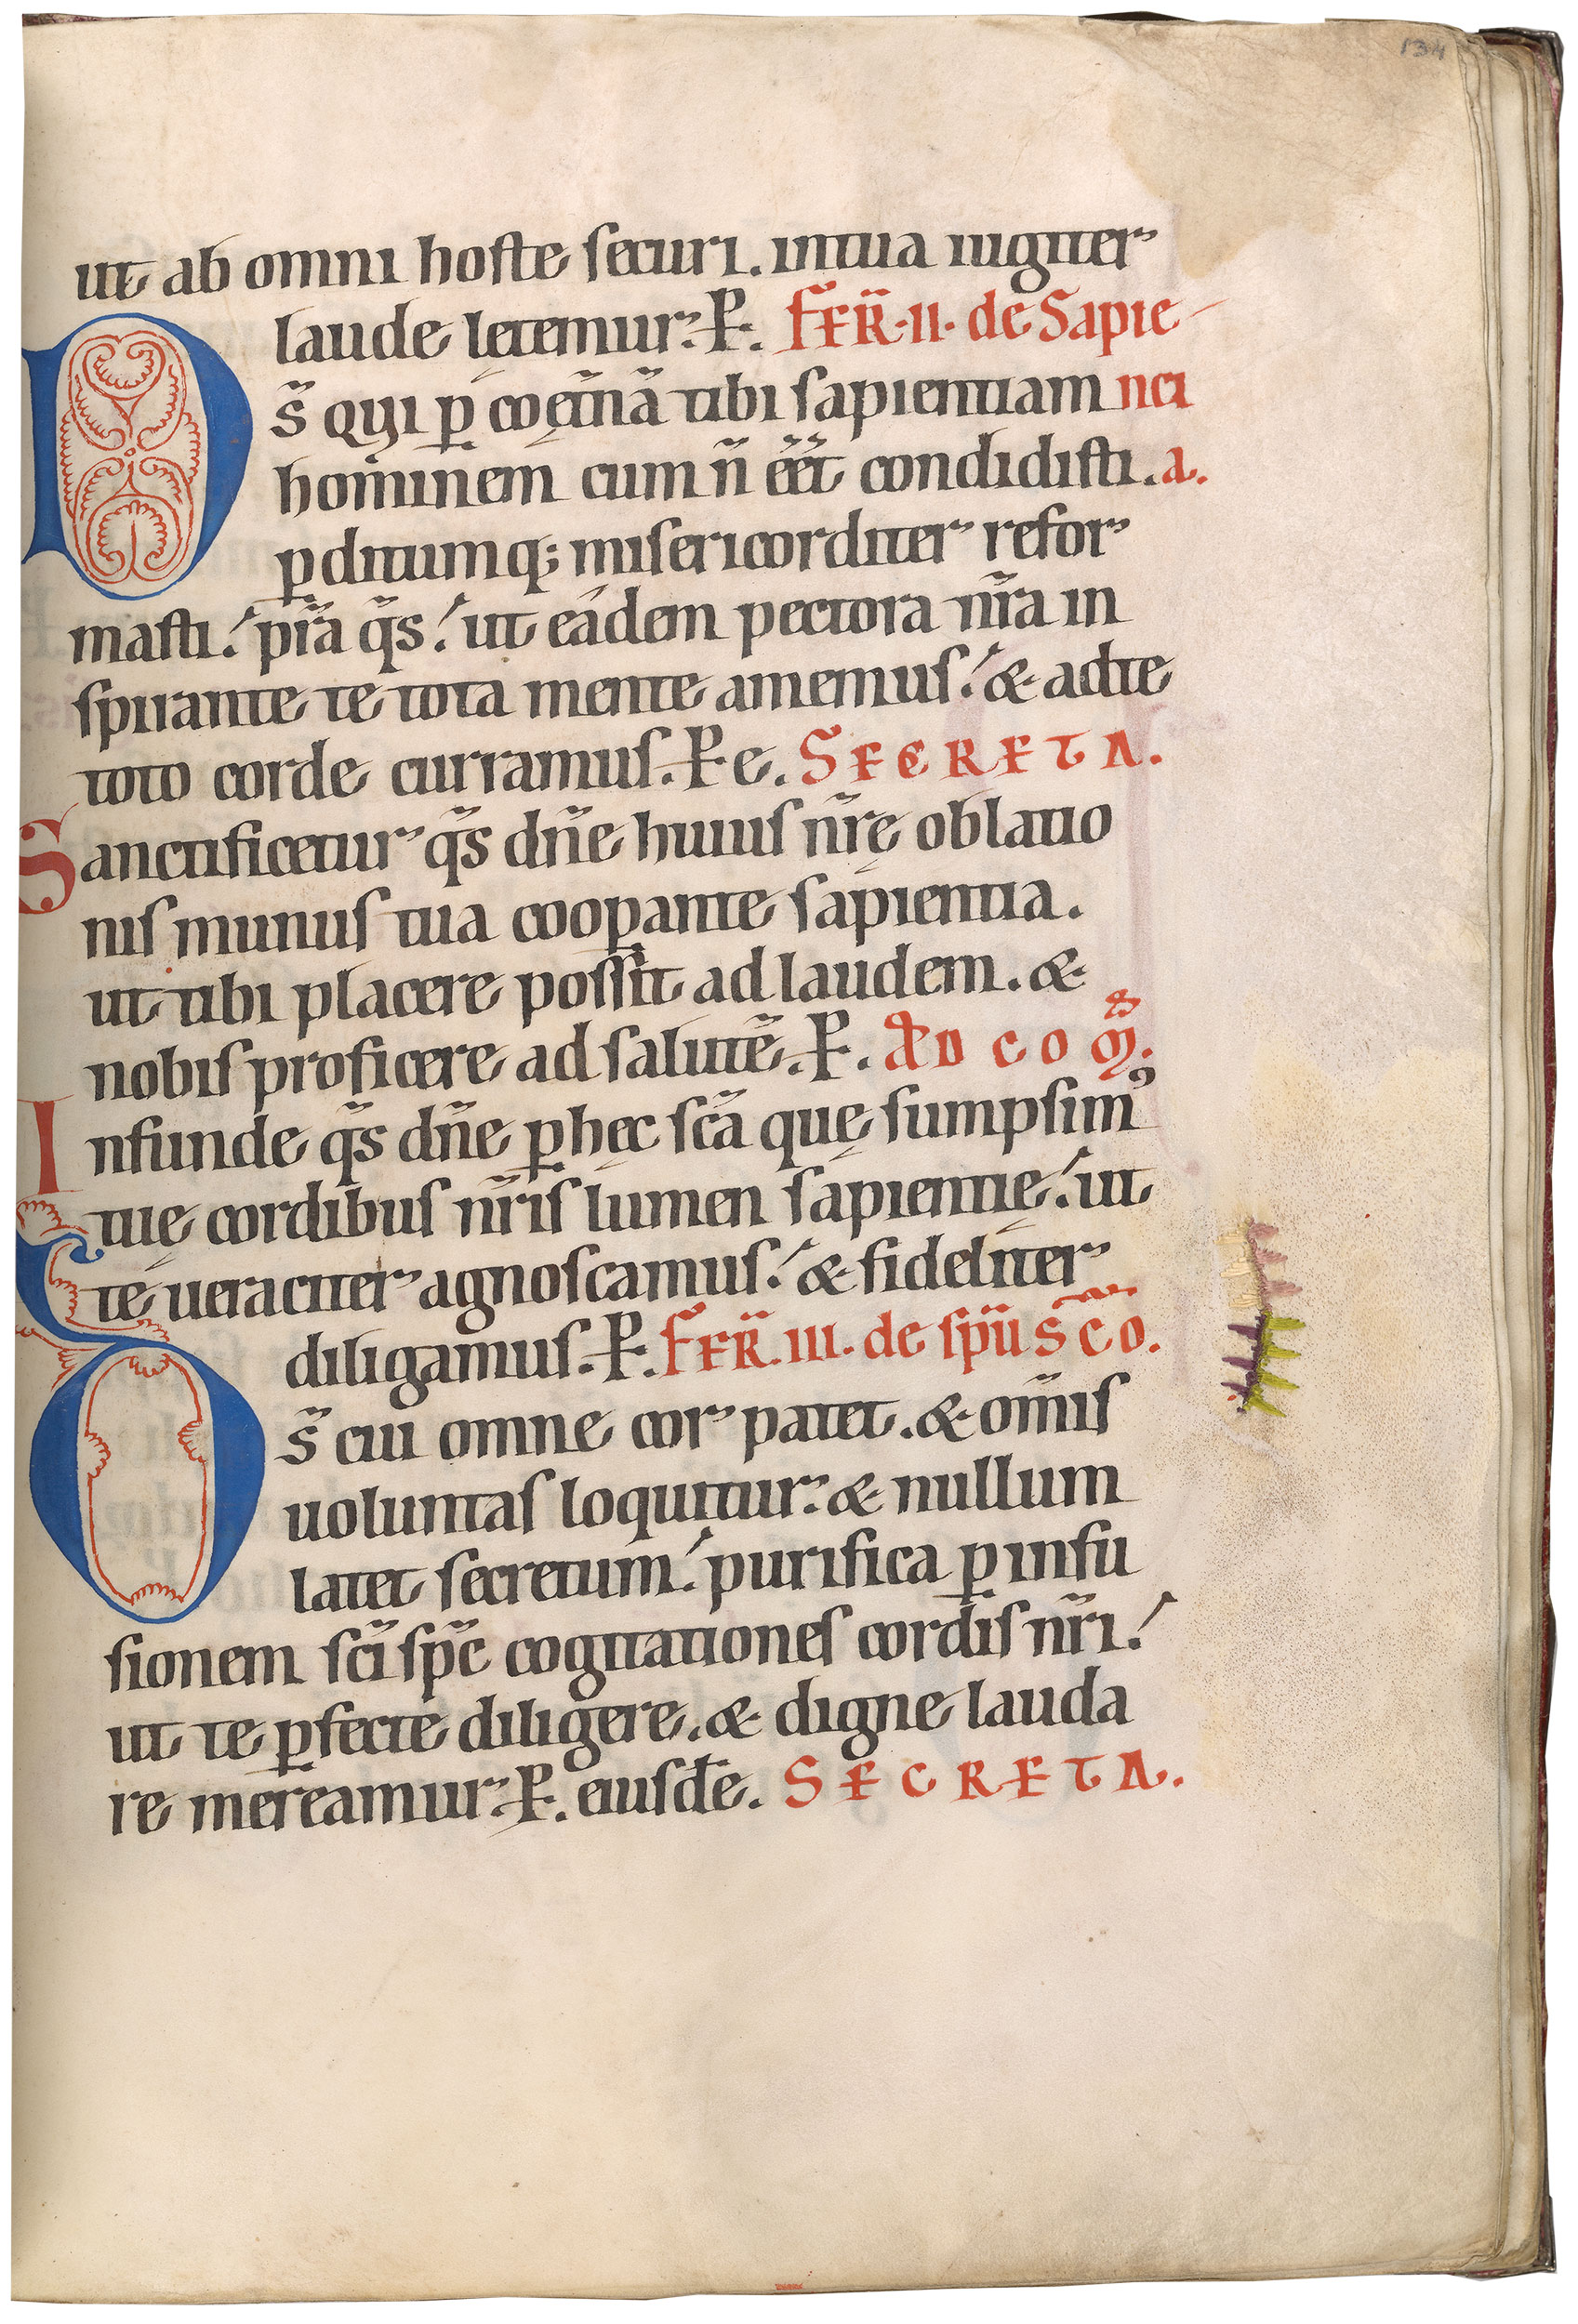 134
ut ab omni hoste securi. in tua iugiter
laude lętemur. P. FER̃·II· de Sapie
DS̃ QUI ꝑ coęt̃nã tibi sapientiam ncı
hominem cum ñ eẽt condidisti. a.
ꝑditumq; misericorditer refor
masti! pr̃a q̃s! ut eádem pectora nr̃a in
spirante te tota mente amemus! & ad te
toto corde curramus. P e. SECRETA.
Sanctificetur q̃s dñe huius nr̃ę oblatio
nis munus tua cooꝑante sapientia.
ut tibi placere possit ad laudem. &
nobis proficere ad salutẽ. P. AD COM̃.
Infunde q̃s dñe ꝑ hęc sc̃a quę sumpsimꝰ
tuę cordibus nr̃is lumen sapientię! ut
té ueraciter agnoscamus! & fideliter
diligamus. P. FER̃. III. de sp̃u S̃C̃O.
DS̃ cui omne cor patet. & om̃is
uoluntas loquitur. & nullum
latet secretum! purifica ꝑ infu
sionem sc̃i sp̃c cogitationes cordis nr̃i!
ut te ꝑfecte diligere. & digne lauda
re mereamur. P. eiusdẽ. SECRETA.